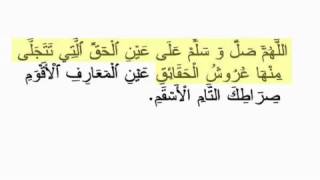 اللَّهُمَّ صَلِّ وَ سَلِّمْ عَلَى عَيْنِ الْحَقِّ الَّتِي تَتَجَلَّى
مِنْهَا عُرُوشُ الْحَقَائِقِ عَيْنِ الْمَعَارِفِ الْأَقْوَمِ
صِرَاطِكَ التَّامِ الْأَسْقَمِ.